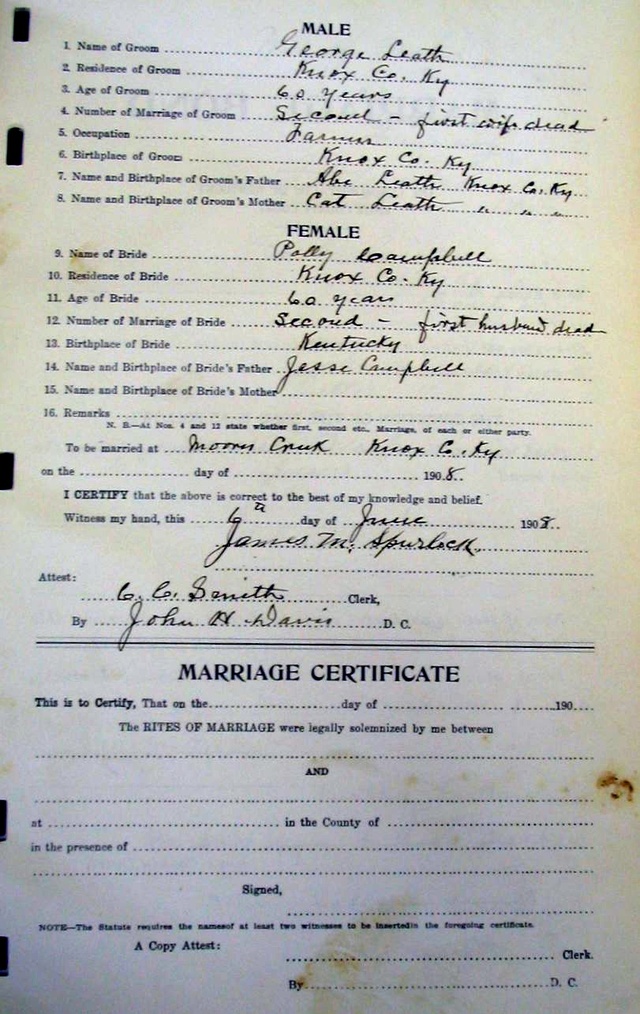 MALE
1. Name of Groom George Leath
2. Residence of Groom Knox Co. Ky
3. Age of Groom 60 years
4. Number of Marriage of Groom Second - first wife dead
5. Occupation Farmer
6. Birthplace of Groom Knox Co. Ky
7. Name and Birthplace of Groom's Father Abe Leath Knox Co. Ky
8. Name and Birthplace of Groom's Mother Cat Leath " " "
FEMALE
9. Name of Bride Polly Campbell
10. Residence of Bride Knox Co. Ky
11. Age of Bride 60 years
12. Number of Marriage of Bride Second - first husband dead
13. Birthplace of Bride Kentucky
14. Name and Birthplace of Bride's Father Jesse Campbell
15. Name and Birthplace of Bride's Mother
16. Remarks
N. B.—At Nos. 4 and 12 state whether first, second etc., Marriage, of each or either party.
To be married at Moors Creek Knox Co. Ky
on the day of 1908.
I CERTIFY that the above is correct to the best of my knowledge and belief.
Witness my hand, this 6 day of June 1908.
James M. Spurlock.
Attest:
C. C. Smith Clerk,
By John H Davis D. C.
MARRIAGE CERTIFICATE
This is to Certify, That on the day of 190
The RITES OF MARRIAGE were legally solemnized by me between
AND
at in the County of
in the presence of
Signed,
NOTE—The Statute requires the namesof at least two witnesses to be insertedin the foregoing certificate.
A Copy Attest:
Clerk.
By D. C.